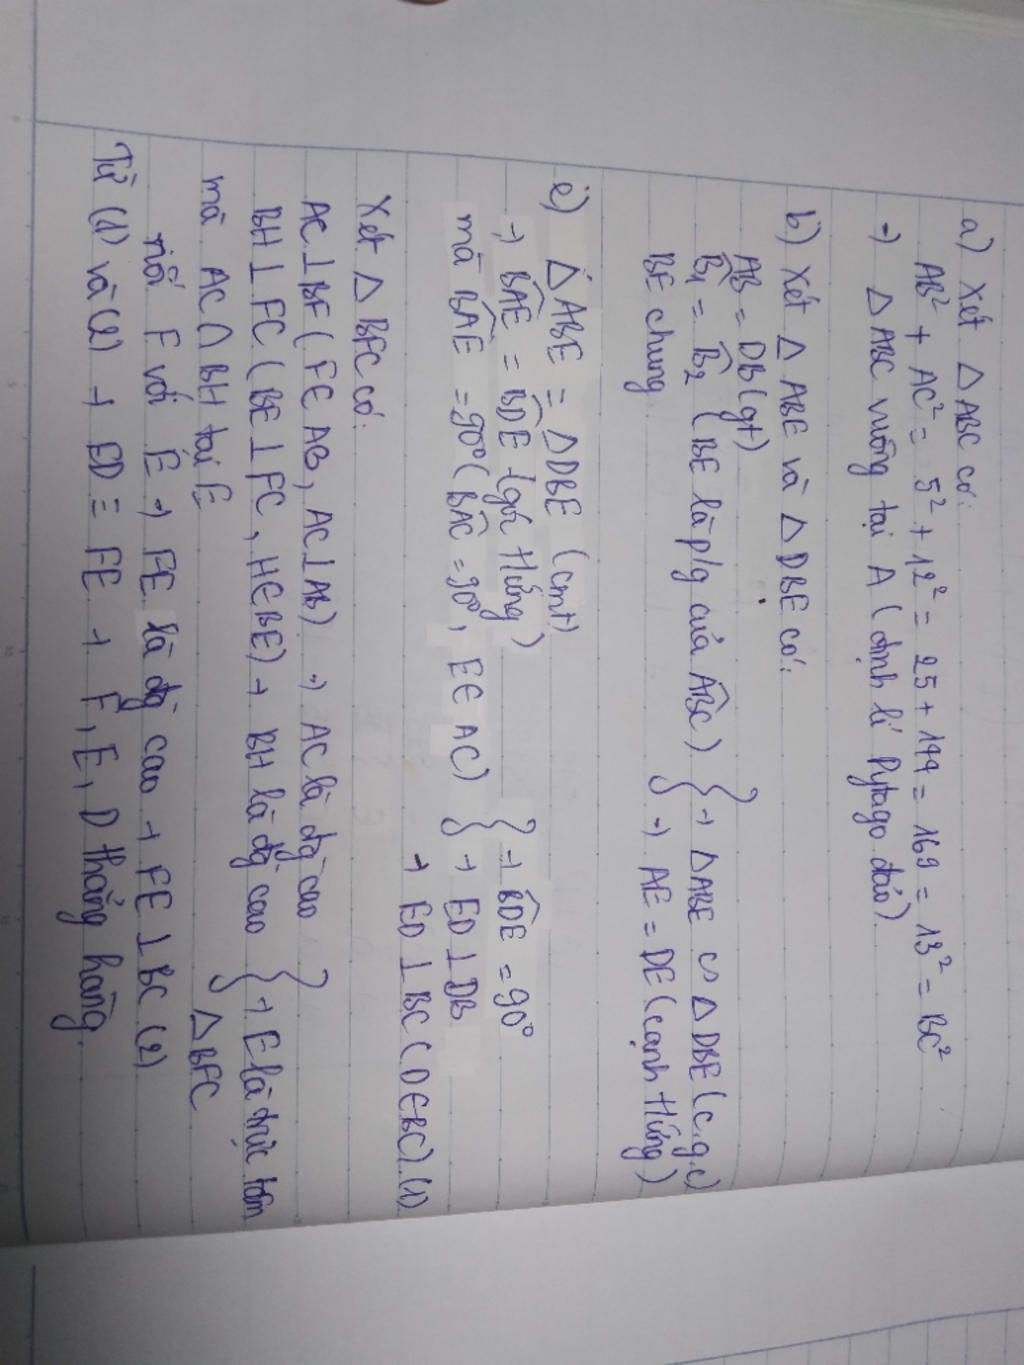 a) Xét △ABC có:
AB² + AC² = 5² + 12² = 25 + 144 = 169 = 13² = BC²
→ △ABC vuông tại A (định lí Pytago đảo).
b) Xét △ABE và △DBE có:
AB = DB (gt)
B̂1 = B̂2 (BE là p/g của ABĈ) } → △ABE ∽ △DBE (c.g.c)
BE chung. → AE = DE (cạnh t/ứng)
c) △ABE = △DBE (cmt)
→ BÂE = BD̂E (góc t/ứng) } → BD̂E = 90°
mà BÂE = 90° (BÂC = 90°, E∈AC) → ED⊥DB
→ ED⊥BC (D∈BC).(1)
Xét △BFC có:
AC⊥BF (F∈AB, AC⊥AB) → AC là đg cao
BH⊥FC (BE⊥FC, H∈BE) → BH là đg cao } → E là trực tâm
mà AC∩BH tại E △BFC
nối F với E → FE là đg cao → FE⊥BC (2)
Từ (1) và (2) → ED ≡ FE → F, E, D thẳng hàng.